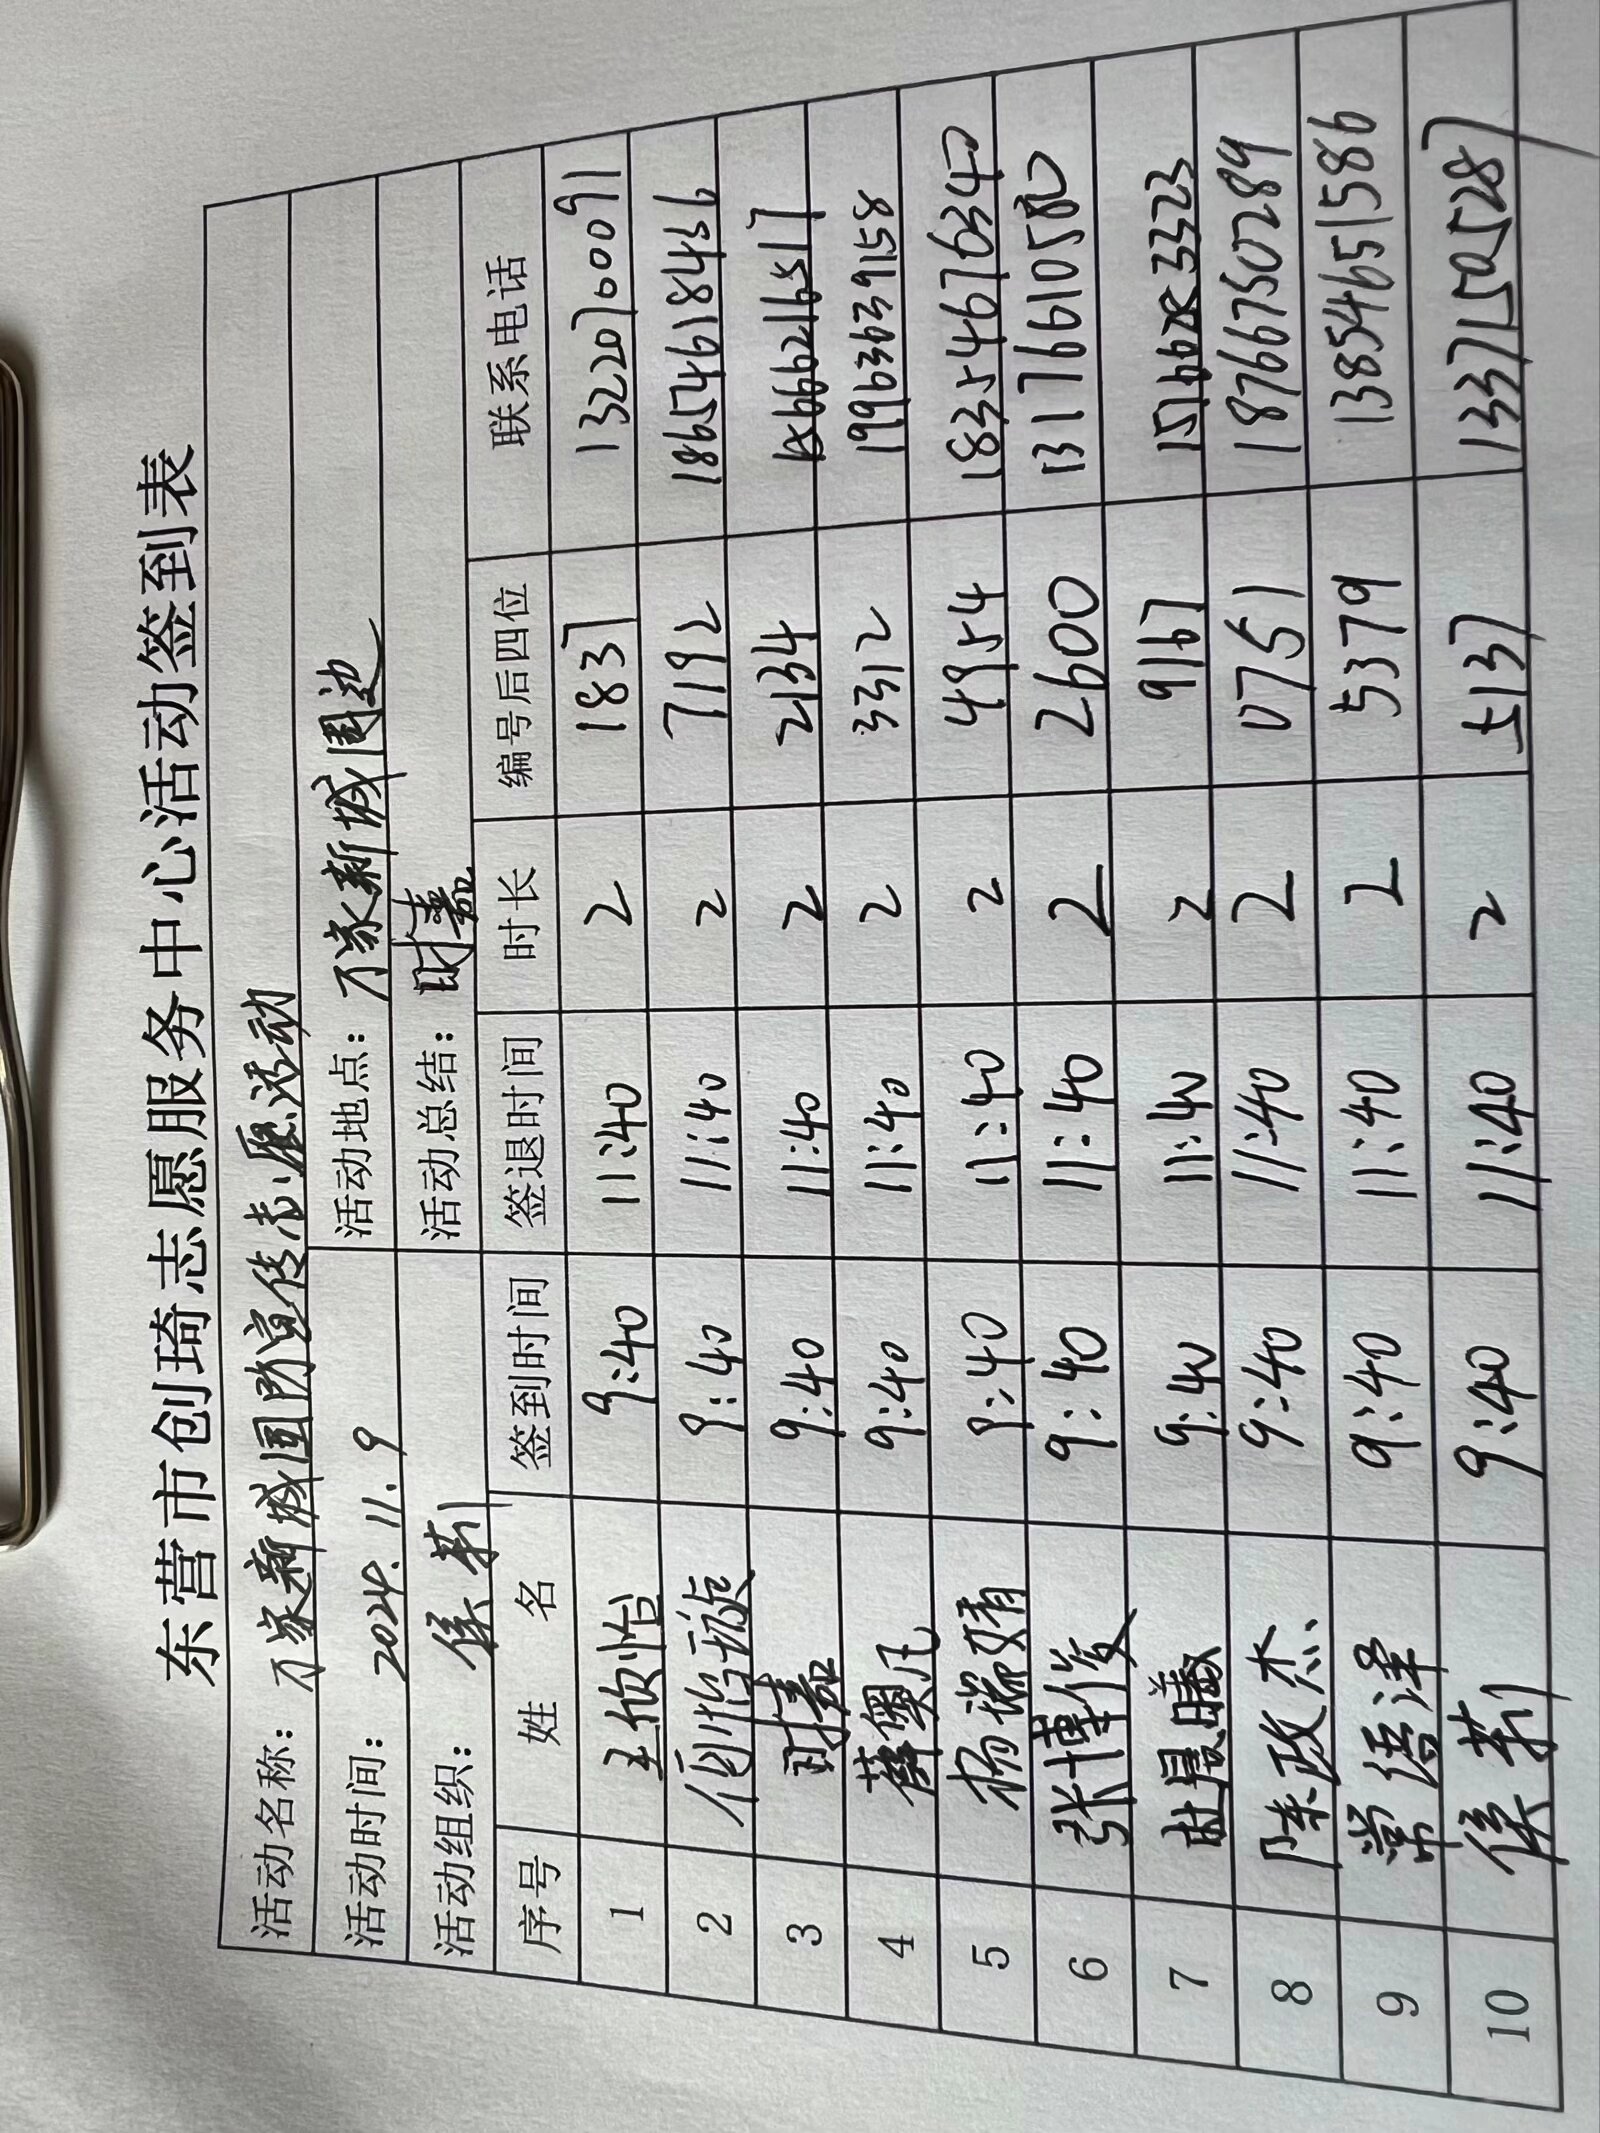 东营市创琦志愿服务中心活动签到表
活动名称: 万家新城国防宣传志愿活动
活动时间: 2024.11.9 活动地点: 万家新城周边
活动组织: 侯莉 活动总结: 时嘉
序号 姓名 签到时间 签退时间 时长 编号后四位 联系电话
1 王侦怡 9:40 11:40 2 1837 13220700091
2 9:40 11:40 2 7192 18654618436
3 时嘉 9:40 11:40 2 2134 18666216517
4 薛奥凡 9:40 11:40 2 3312 19963639158
5 杨瑞婧 9:40 11:40 2 4954 18354676340
6 张博俊 9:40 11:40 2 2600 13176610580
7 9:40 11:40 2 9167
8 陈政杰 9:40 11:40 2 0751 18766750289
9 常语泽 9:40 11:40 2 5379 13854651586
10 侯莉 9:40 11:40 2 5137 13371505287